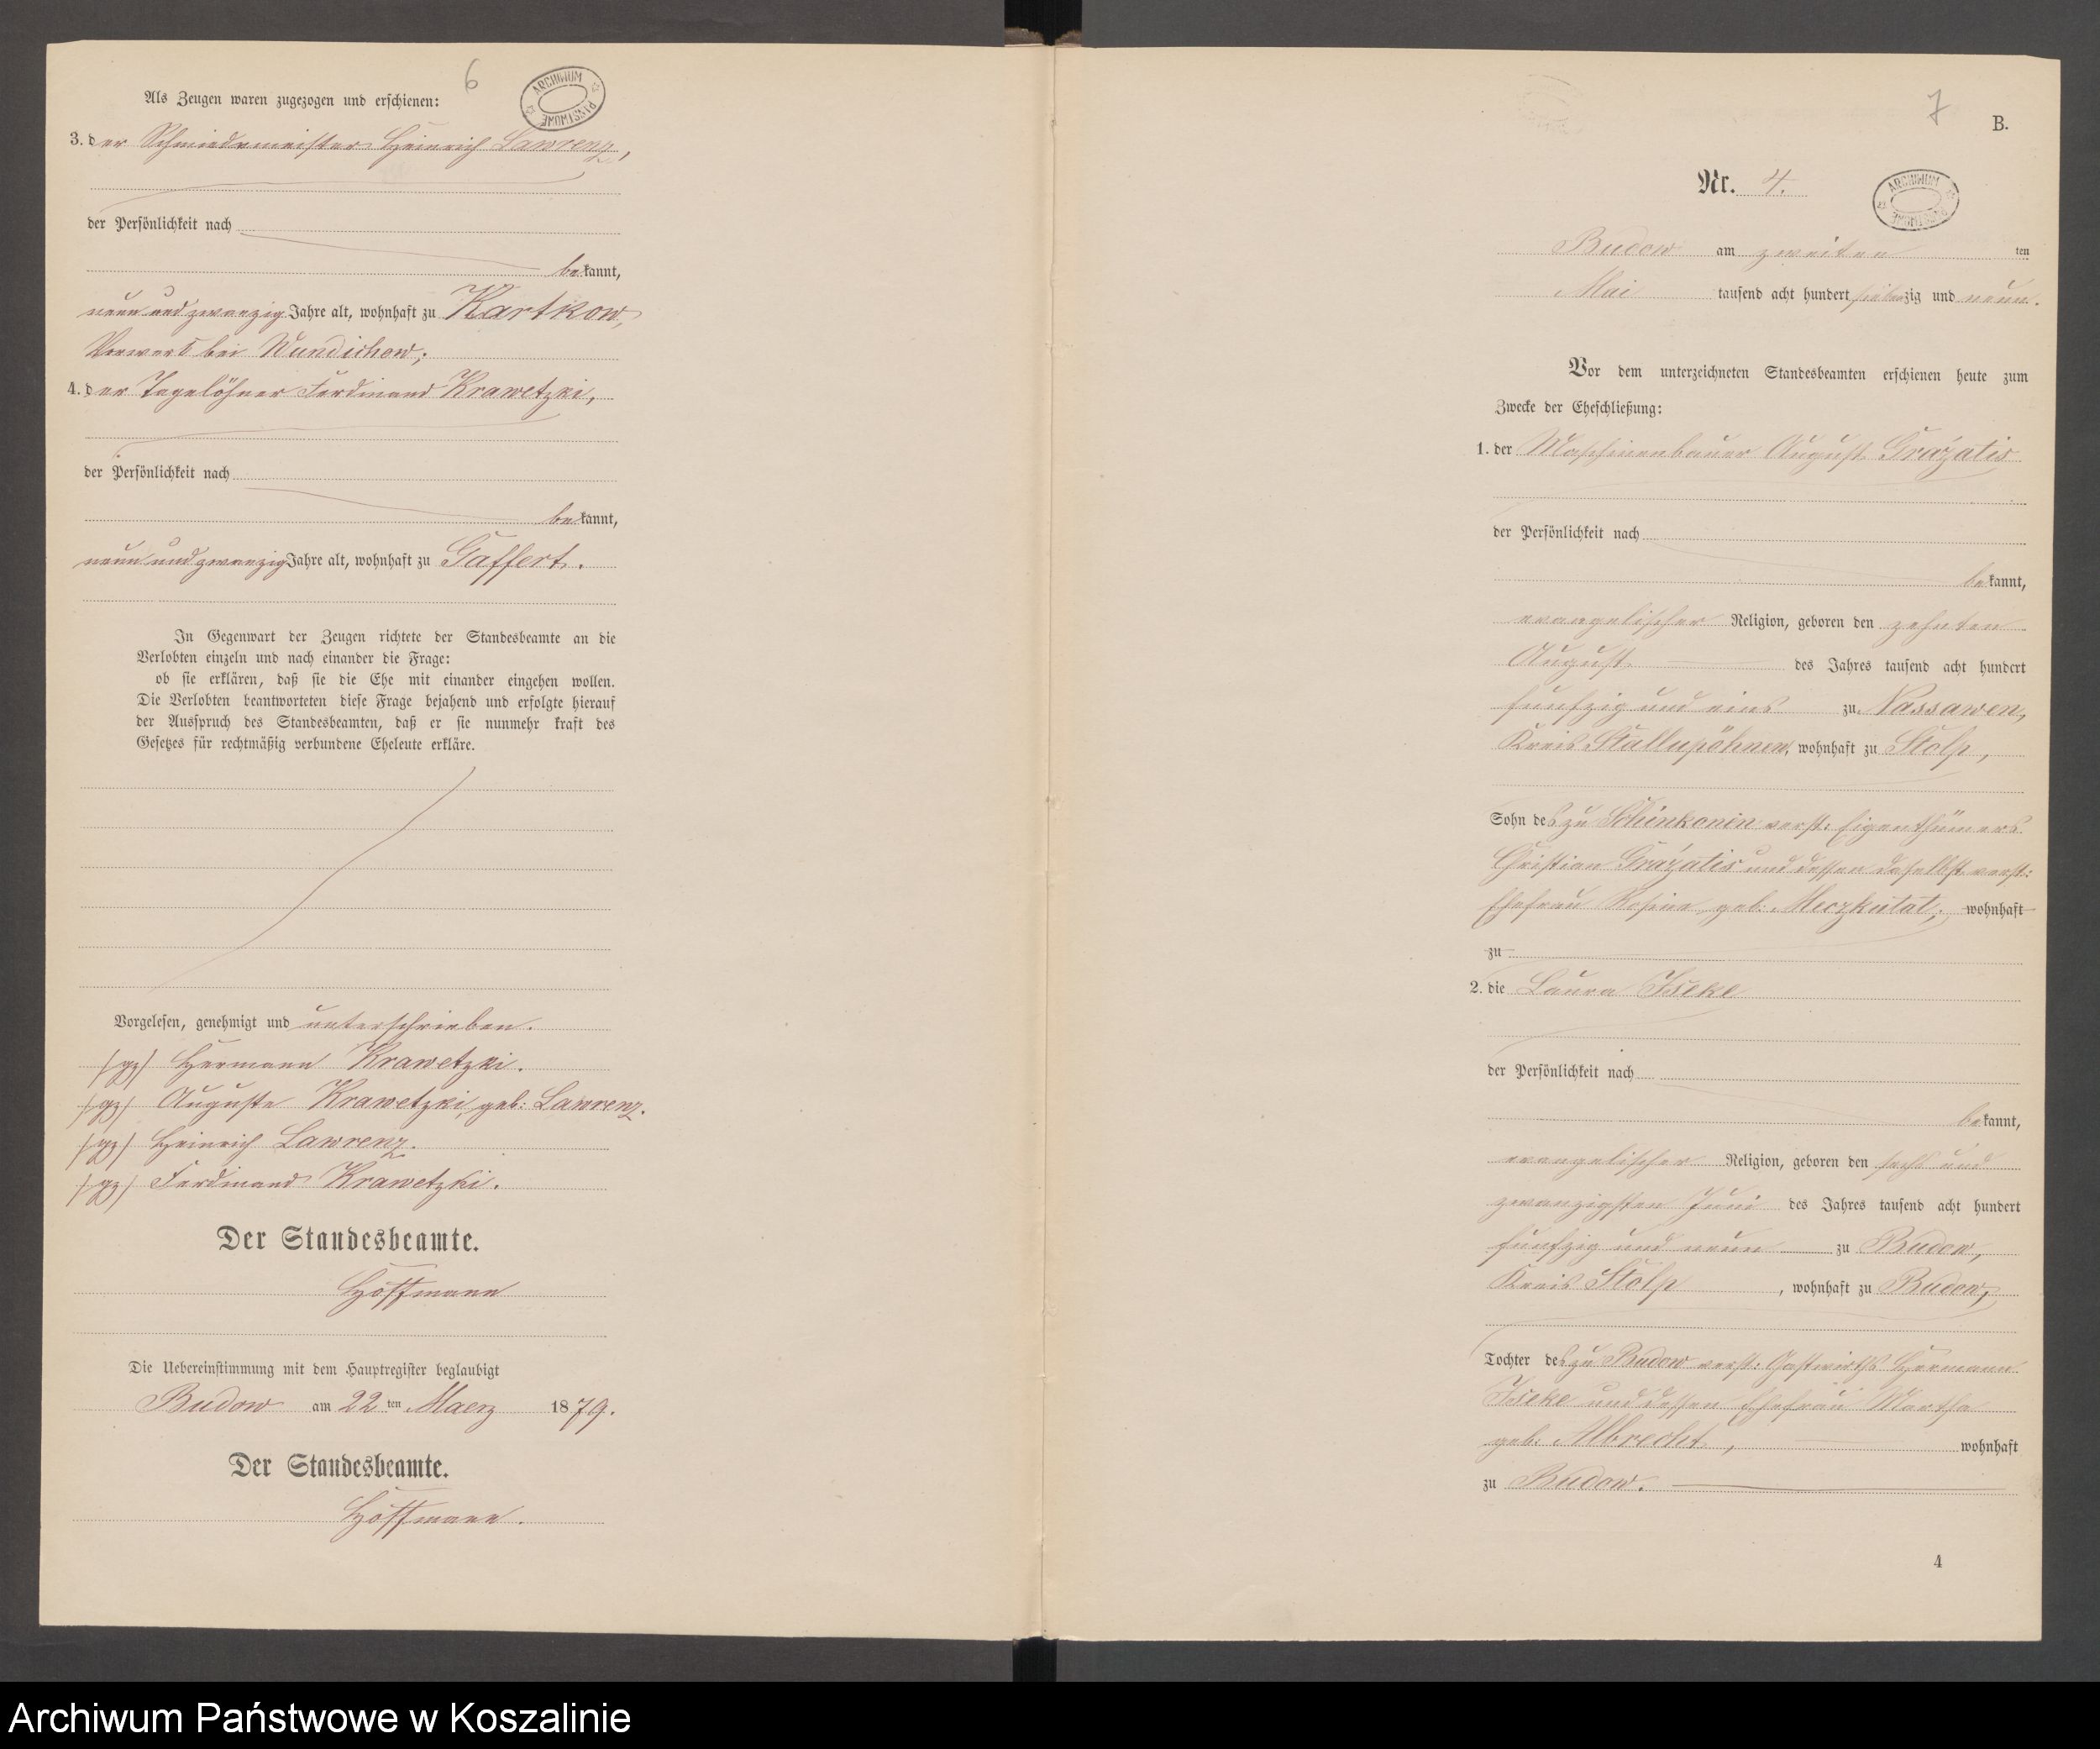 6
ARCHIWUM PAŃSTWOWE
Als Zeugen waren zugezogen und erschienen:
3. der Schmiedemeister Heinrich Lawrenz,
der Persönlichkeit nach
bekannt,
neun und zwanzig Jahre alt, wohnhaft zu Kartkow,
Vorwerk bei Wundichow;
4. der Tagelöhner Ferdinand Krawetzki,
der Persönlichkeit nach
bekannt,
neun und zwanzig Jahre alt, wohnhaft zu Gaffert.
In Gegenwart der Zeugen richtete der Standesbeamte an die
Verlobten einzeln und nach einander die Frage:
ob sie erklären, daß sie die Ehe mit einander eingehen wollen.
Die Verlobten beantworteten diese Frage bejahend und erfolgte hierauf
der Ausspruch des Standesbeamten, daß er sie nunmehr kraft des
Gesetzes für rechtmäßig verbundene Eheleute erkläre.
Vorgelesen, genehmigt und unterschrieben.
/gz/ Hermann Krawetzki.
/gz/ Auguste Krawetzki, geb: Lawrenz.
/gz/ Heinrich Lawrenz.
/gz/ Ferdinand Krawetzki.
Der Standesbeamte.
Hoffmann
Die Uebereinstimmung mit dem Hauptregister beglaubigt
Budow am 22 ten Maerz 1879.
Der Standesbeamte.
Hoffmann.
7
B.
Nr. 4.
ARCHIWUM PAŃSTWOWE
Budow am zweiten ten
Mai tausend acht hundert siebenzig und neun.
Vor dem unterzeichneten Standesbeamten erschienen heute zum
Zwecke der Eheschließung:
1. der Maschinenbauer August Grazatis
der Persönlichkeit nach
bekannt,
evangelischer Religion, geboren den zehnten
August des Jahres tausend acht hundert
funfzig und eins zu Nassawen,
Kreis Stallupöhnen, wohnhaft zu Stolp,
Sohn des zu Schinkonin verst: Eigenthümers
Christian Grazatis und dessen daselbst verst:
Ehefrau Rosine geb: Meczkutat, wohnhaft
zu
2. die Laura Iseke
der Persönlichkeit nach
bekannt,
evangelischer Religion, geboren den sechs und
zwanzigsten Juni des Jahres tausend acht hundert
funfzig und neun zu Budow,
Kreis Stolp, wohnhaft zu Budow,
Tochter des zu Budow verst: Gastwirths Hermann
Iseke und dessen Ehefrau Martha
geb: Albrecht, wohnhaft
zu Budow.
4
Archiwum Państwowe w Koszalinie